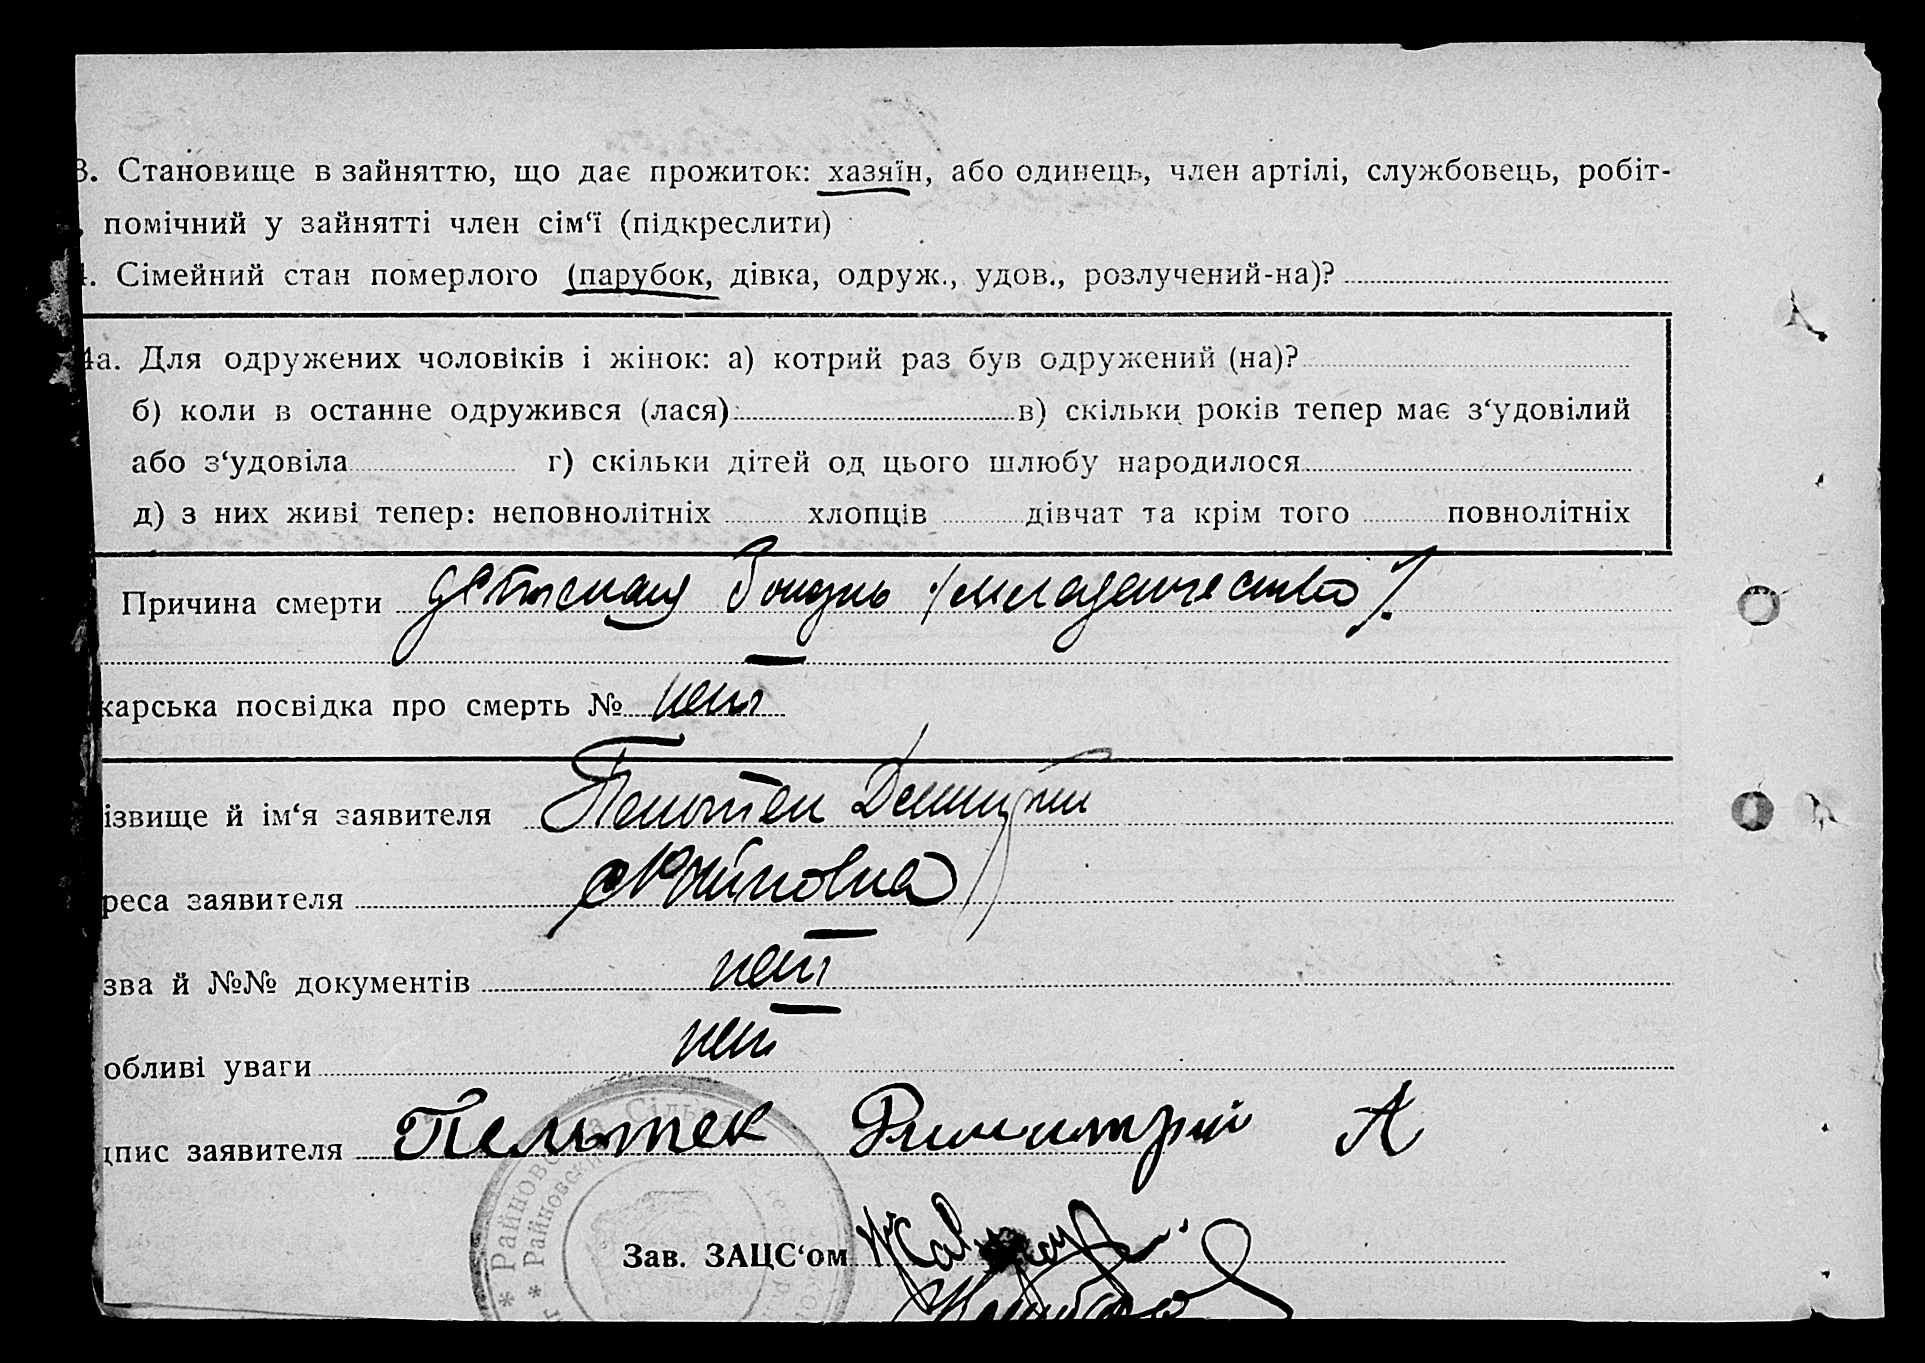 3. Становище в зайняттю, що дає прожиток: хазяїн, або одинець, член артілі, службовець, робіт-
помічний у зайнятті член сім‘ї (підкреслити)
4. Сімейний стан померлого (парубок, дівка, одруж., удов., розлучений-на)?
4а. Для одружених чоловіків і жінок: а) котрий раз був одружений (на)?
б) коли в останнє одружився (лася) в) скільки років тепер має з‘удовілий
або з‘удовіла г) скільки дітей од цього шлюбу народилося
д) з них живі тепер: неповнолітніх хлопців дівчат та крім того повнолітніх
Причина смерти детская болезнь /младенчество/.
карська посвідка про смерть № нет
ізвище й ім‘я заявителя Пельтек Дмитрий
реса заявителя с Райновка
зва й №№ документів нет
обливі уваги нет
дпис заявителя Пельтек Димитрий А
Зав. ЗАЦС‘ом
* Райновс а Сіль
* Райновски